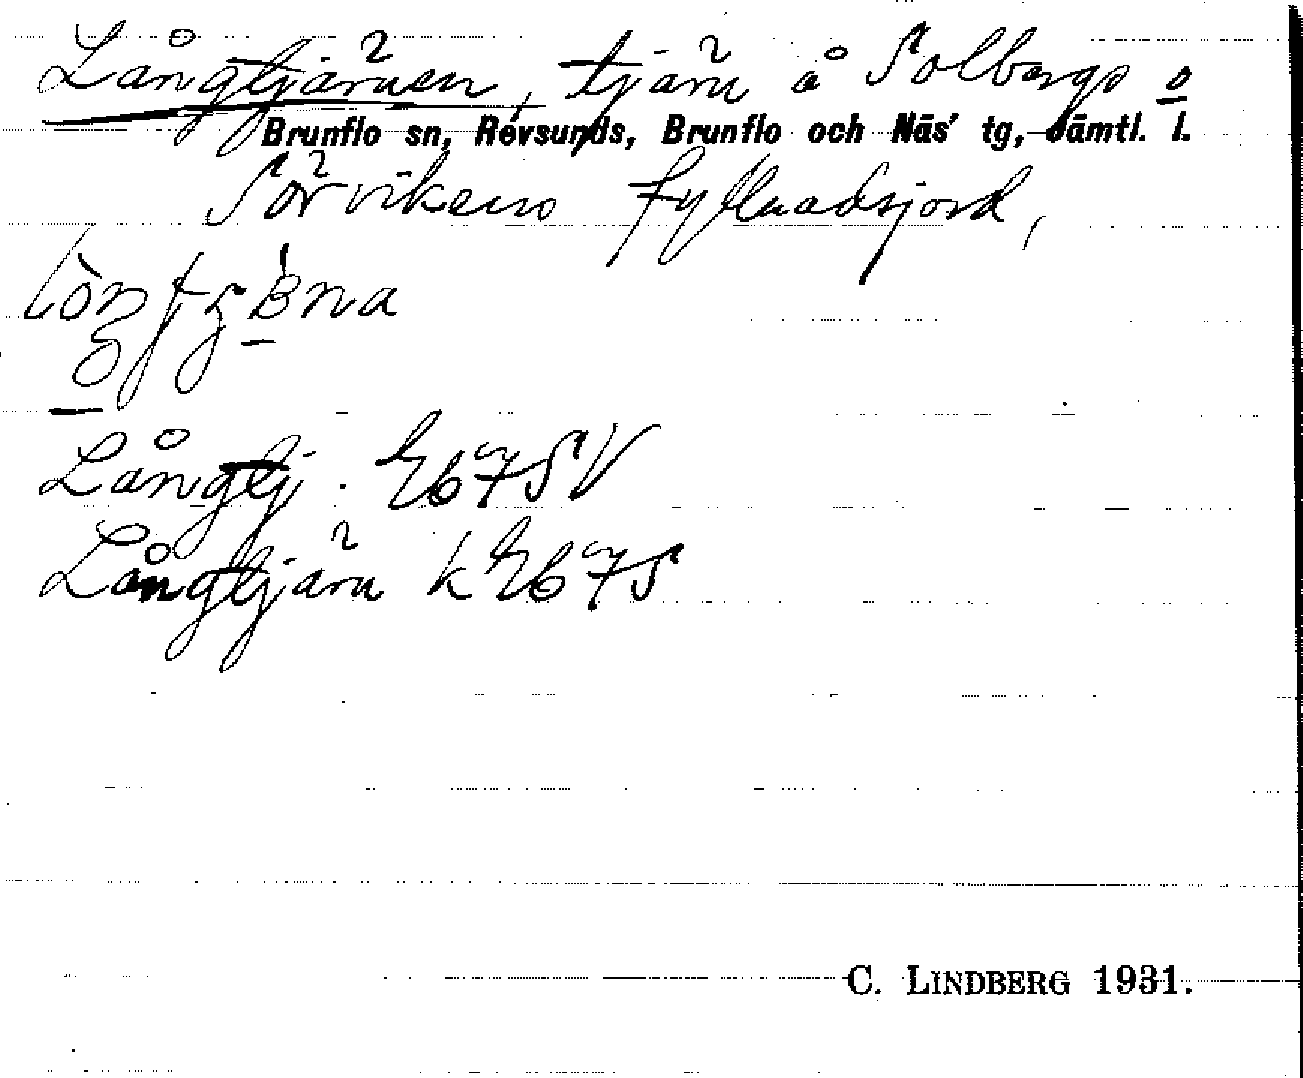 Långtjärnen, tjärn å Solbergs o
Brunflo sn, Revsunds, Brunflo och Näs' tg, Jämtl. l.
Sörvikens fyllnadsjord,
Långtj. Eb 7SV
Långtjärn k Eb 7S
C. LINDBERG 1931.